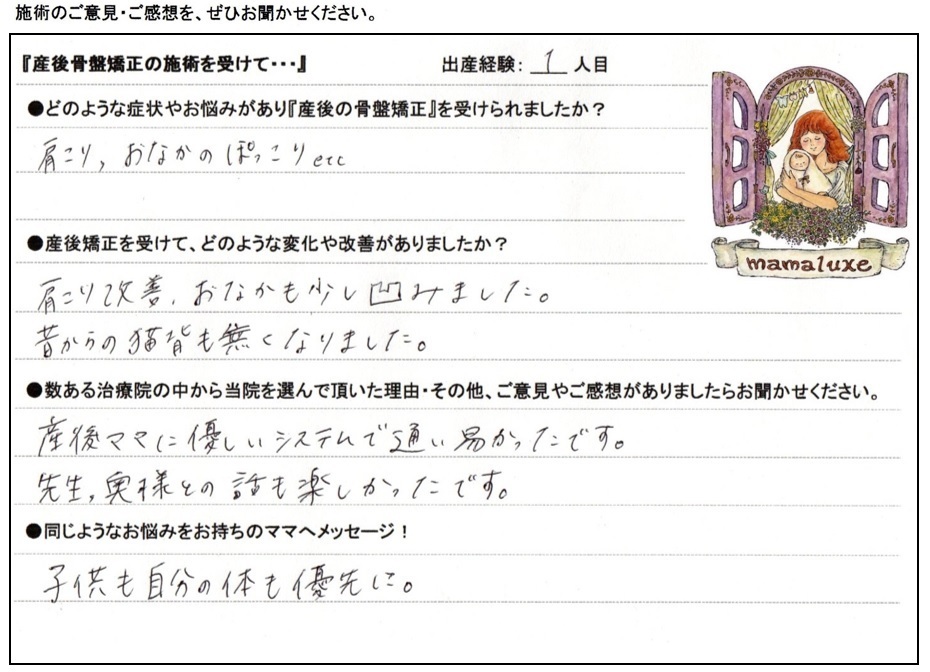 施術のご意見・ご感想を、ぜひお聞かせください。
『産後骨盤矯正の施術を受けて・・・』 出産経験: 1 人目
●どのような症状やお悩みがあり『産後の骨盤矯正』を受けられましたか？
肩こり, おなかのぽっこりetc
●産後矯正を受けて、どのような変化や改善がありましたか？
肩こり改善、おなかも少し凹みました。
昔からの猫背も無くなりました。
mamaluxe
●数ある治療院の中から当院を選んで頂いた理由・その他、ご意見やご感想がありましたらお聞かせください。
産後ママに優しいシステムで通い易かったです。
先生, 奥様との話も楽しかったです。
●同じようなお悩みをお持ちのママへメッセージ！
子供も自分の体も優先に。